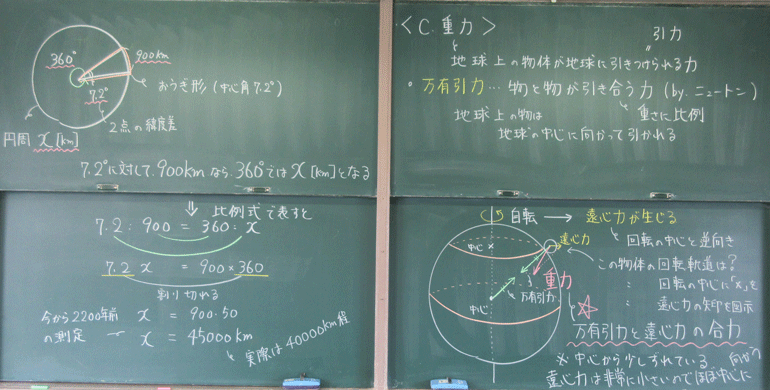 360°
900km
7.2°
おうぎ形(中心角7.2°)
2点の緯度差
円周 x[km]
7.2°に対して、900kmなら、360°ではx[km]となる
⇓ 比例式で表すと
7.2:900=360:x
7.2x=900×360
割り切れる
今から2200年前の測定
x=900・50
x=45000km
実際は40000km程
<C.重力>
引力
地球上の物体が地球に引きつけられる力
・万有引力…物と物が引き合う力(by.ニュートン)
重さに比例
地球上の物は
地球の中心に向かって引かれる
自転→遠心力が生じる
回転の中心と逆向き
中心×
遠心力
この物体の回転軌道は?
〃 回転の中心に「×」を
〃 遠心力の矢印を図示
重力
万有引力
中心
☆
万有引力と遠心力の合力
※中心から少しずれている
遠心力は非常に小さいのでほぼ中心に
向かう